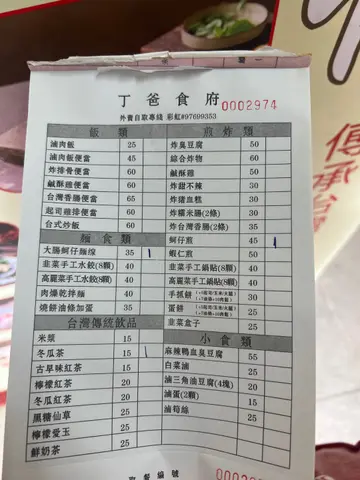 丁爸食府
0002974
外賣自取專綫 彩虹#97699353
飯類
滷肉飯 25
滷肉飯便當 45
炸排骨便當 60
鹹酥雞便當 60
台灣香腸便當 60
起司雞排便當 60
台式炒飯 60
麵食類
大腸蚵仔麵線 35
韮菜手工水餃(8顆) 40
高麗菜手工水餃(8顆) 40
肉燥乾拌麵 40
燒餅油條加蛋 35
台灣傳統飲品
米漿 15
冬瓜茶 15
古早味紅茶 15
檸檬紅茶 20
冬瓜紅茶 20
黑糖仙草 25
檸檬愛玉 25
鮮奶茶 25
煎炸類
炸臭豆腐 50
綜合炸物 60
鹹酥雞 50
炸甜不辣 30
炸豬血糕 30
炸糯米腸(2條) 30
炸台灣香腸(2條) 35
蚵仔煎 45
蝦仁煎 50
韮菜手工鍋貼(8顆) 40
高麗菜手工鍋貼(8顆) 40
手抓餅 30
蛋餅 25
韮菜盒子 25
小食類
麻辣鴨血臭豆腐 55
白菜滷 25
滷三角油豆腐(4塊) 20
滷蛋(2顆) 15
滷筍絲 25
取餐編號